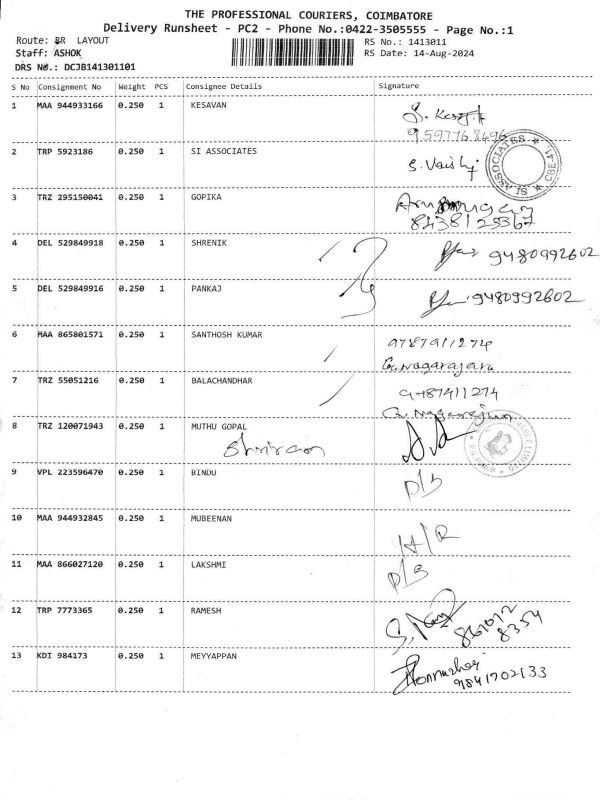 THE PROFESSIONAL COURIERS, COIMBATORE
Delivery Runsheet - PC2 - Phone No.:0422-3505555 - Page No.:1
Route: BR LAYOUT
RS No.: 1413011
Staff: ASHOK
RS Date: 14-Aug-2024
DRS No.: DCJB141301101
S No Consignment No Weight PCS Consignee Details Signature
1 MAA 944933166 0.250 1 KESAVAN
9597768496
2 TRP 5923186 0.250 1 SI ASSOCIATES S. Vaishy
SI ASSOCIATES ★ CBE-41 ★
3 TRZ 295150041 0.250 1 GOPIKA
8438125367
4 DEL 529849918 0.250 1 SHRENIK 9480992602
5 DEL 529849916 0.250 1 PANKAJ 9480992602
6 MAA 865801571 0.250 1 SANTHOSH KUMAR 9787911274
G. Nagarajan
7 TRZ 55051216 0.250 1 BALACHANDHAR 9487411274
G. Nagarajan
8 TRZ 120071943 0.250 1 MUTHU GOPAL
Shriram
9 VPL 223596470 0.250 1 BINDU D/B
10 MAA 944932845 0.250 1 MUBEENAN H/R
11 MAA 866027120 0.250 1 LAKSHMI D/B
12 TRP 7773365 0.250 1 RAMESH
8354
13 KDI 984173 0.250 1 MEYYAPPAN
9841702133